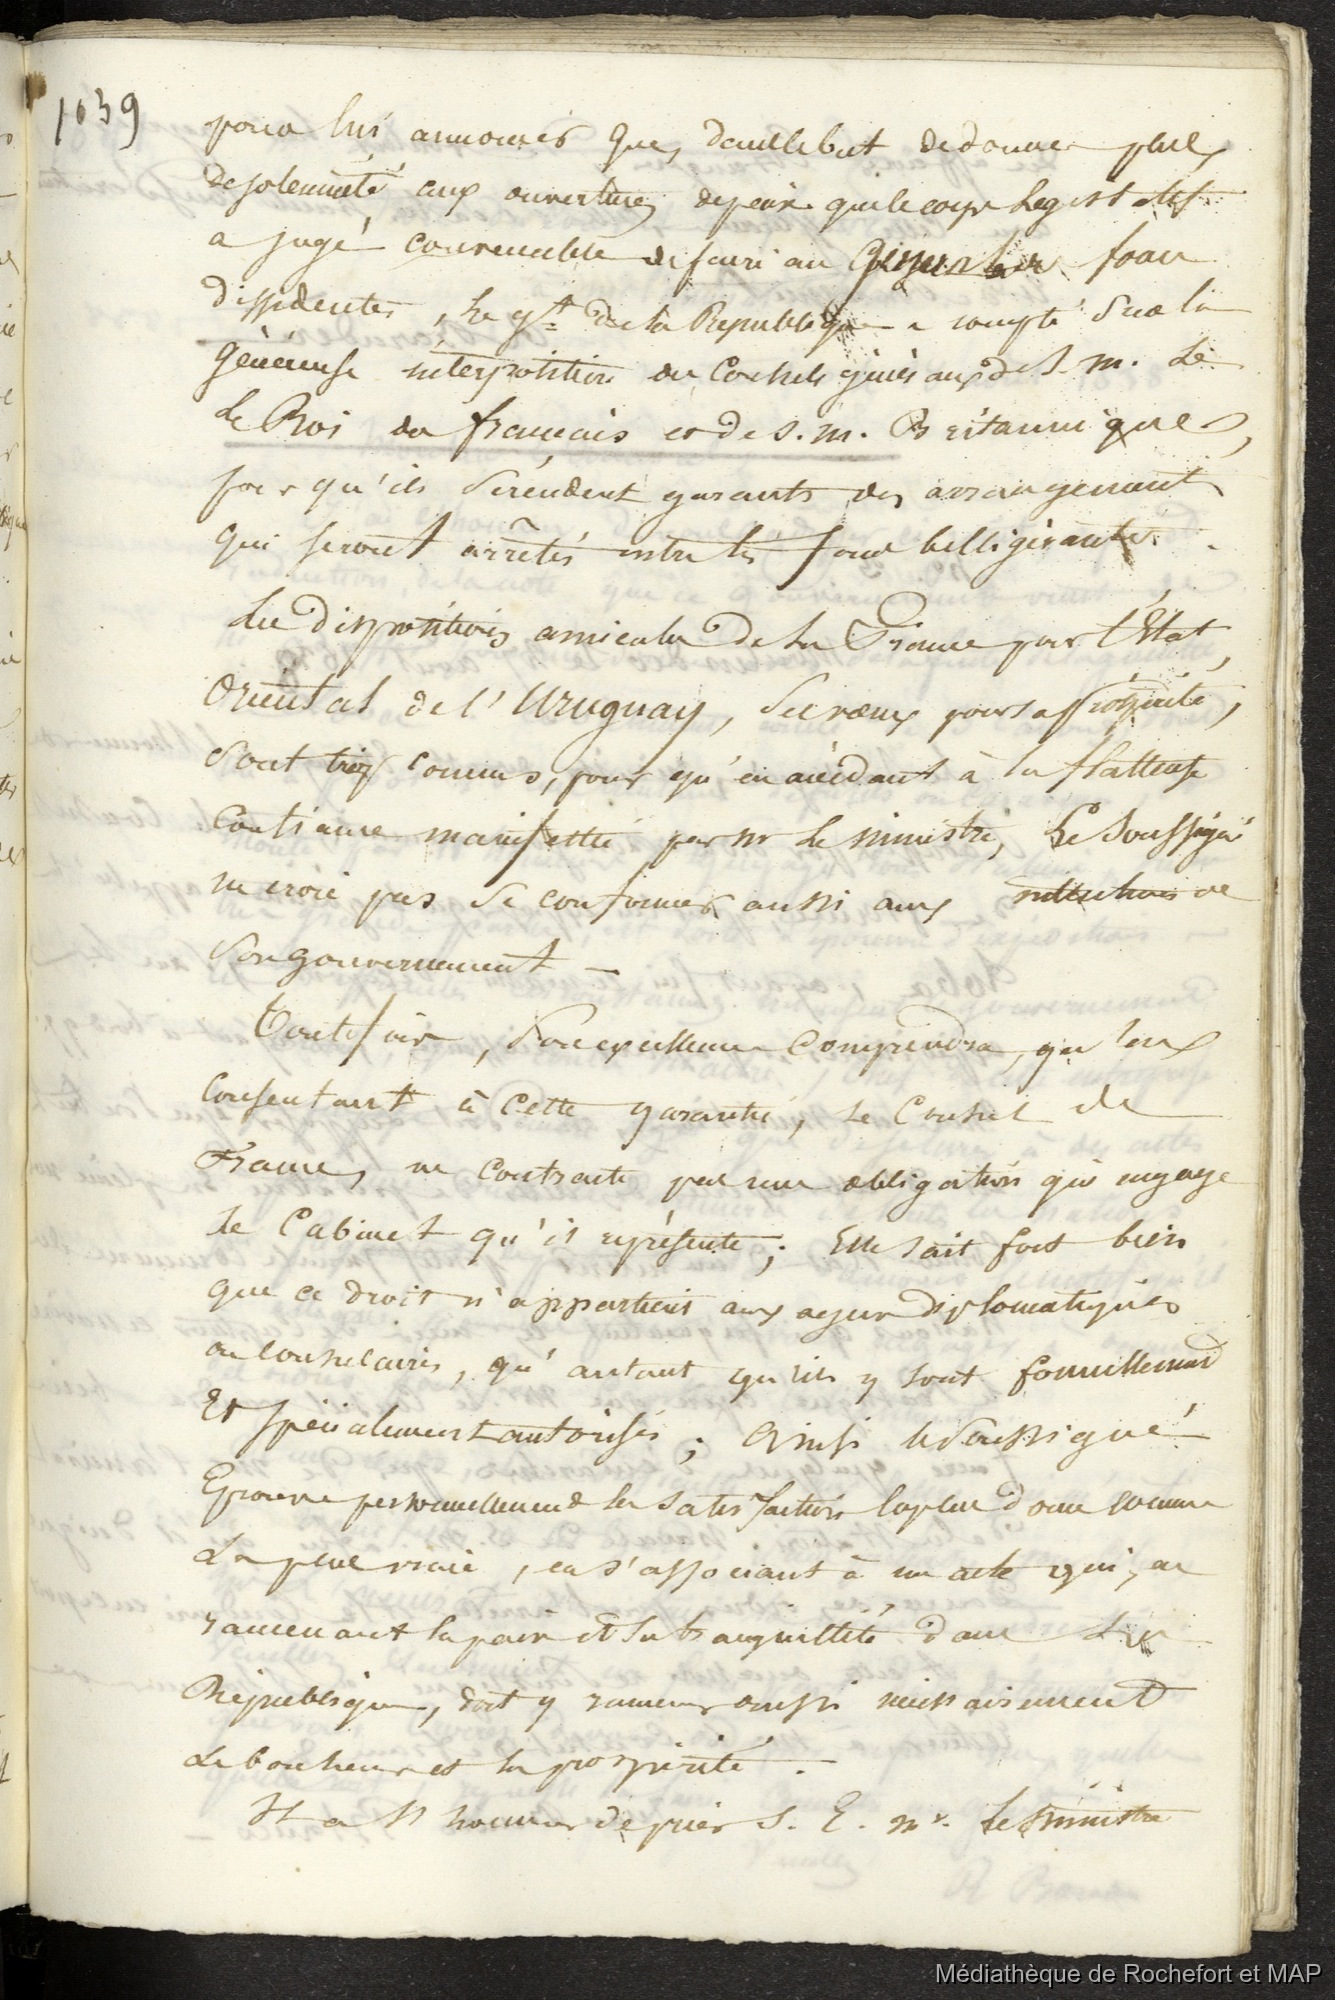 1039
pour lui annoncer que, dans le but de donner plus
de solennité aux ouvertures de paix que le corps Législatif
a jugé convenable de faire au
dissidentes, Le gt de la République a compté sur la
généreuse interposition des Consuls généraux de S. M. Le
Le Roi des français et de S. M. Britannique,
pour qu'ils se rendent garants des arrangements
qui seront arrêtés entre les forces belligérantes.
Les dispositions amicales de la France pour l'Etat
Oriental de l'Uruguay, ses vœux pour sa prospérité,
sont trop connus, pour qu'en accédant à la flatteuse
Confiance manifestée par Mr Le Ministre, Le Soussigné
ne croie pas se conformer aussi aux intentions de
son gouvernement —
Toutefois, son excellence comprendra, qu'en
consentant à cette garantie, le Consul de
France, ne contracte pas une obligation qui engage
le Cabinet qu'il représente; Elle sait fort bien
que ce droit n'appartient aux agens diplomatiques
ou consulaires, qu'autant qu'ils y sont formellement
Et spécialement autorisés; Ainsi le Soussigné
Eprouve personnellement la satisfaction la plus douce comme
La plus vraie, en s'associant à un acte qui, en
ramenant la paix et la tranquillité dans la
République, doit y ramener aussi nécessairement
Le bonheur et la prospérité.
Il a l'honneur de prier S. E. Mr. Le Ministre
Médiathèque de Rochefort et MAP